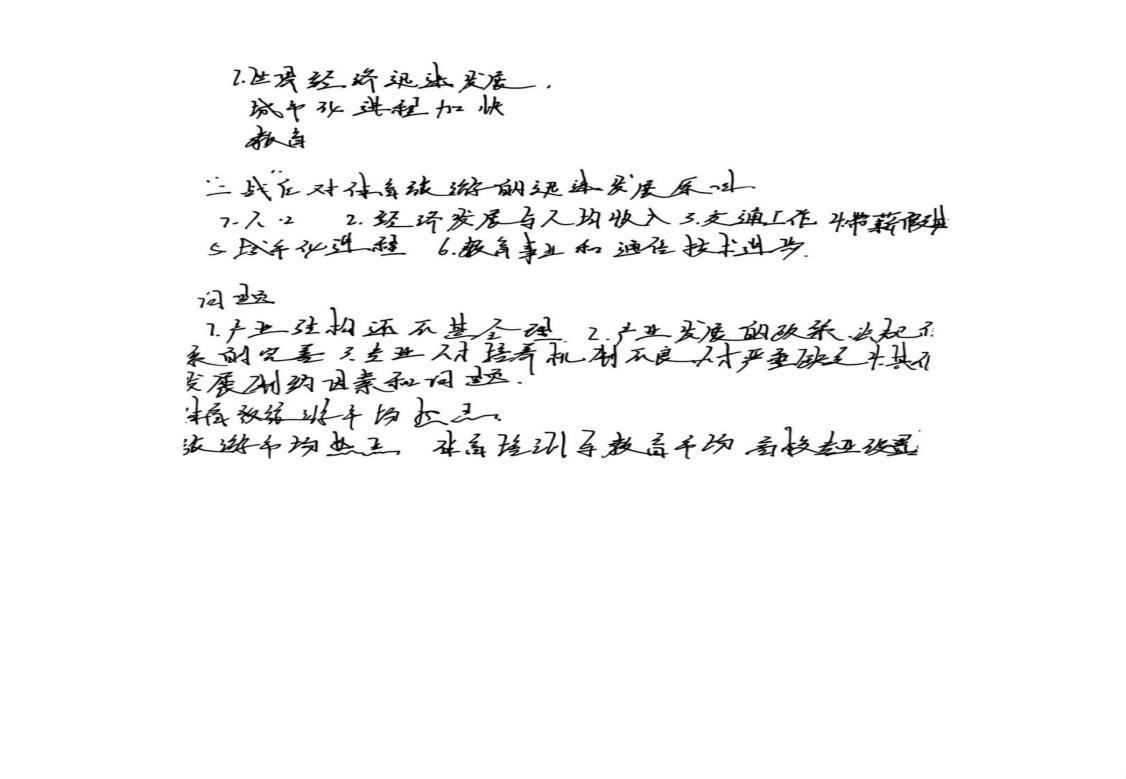 1.世界经济迅速发展.
城市化进程加快
教育
"二战"后对体育旅游的迅速发展原因
1.人口 2.经济发展与人均收入 3.交通工作 4.带薪假期
5.城市化进程 6.教育事业和通信技术进步.
问题
1.产业结构还不甚合理 2.产业发展的政策法规
系的完善 3.专业人才培养机制不良,人才严重缺乏 4.其
发展制约因素和问题.
体育旅游
旅游 体育培训与教育 高校专业设置